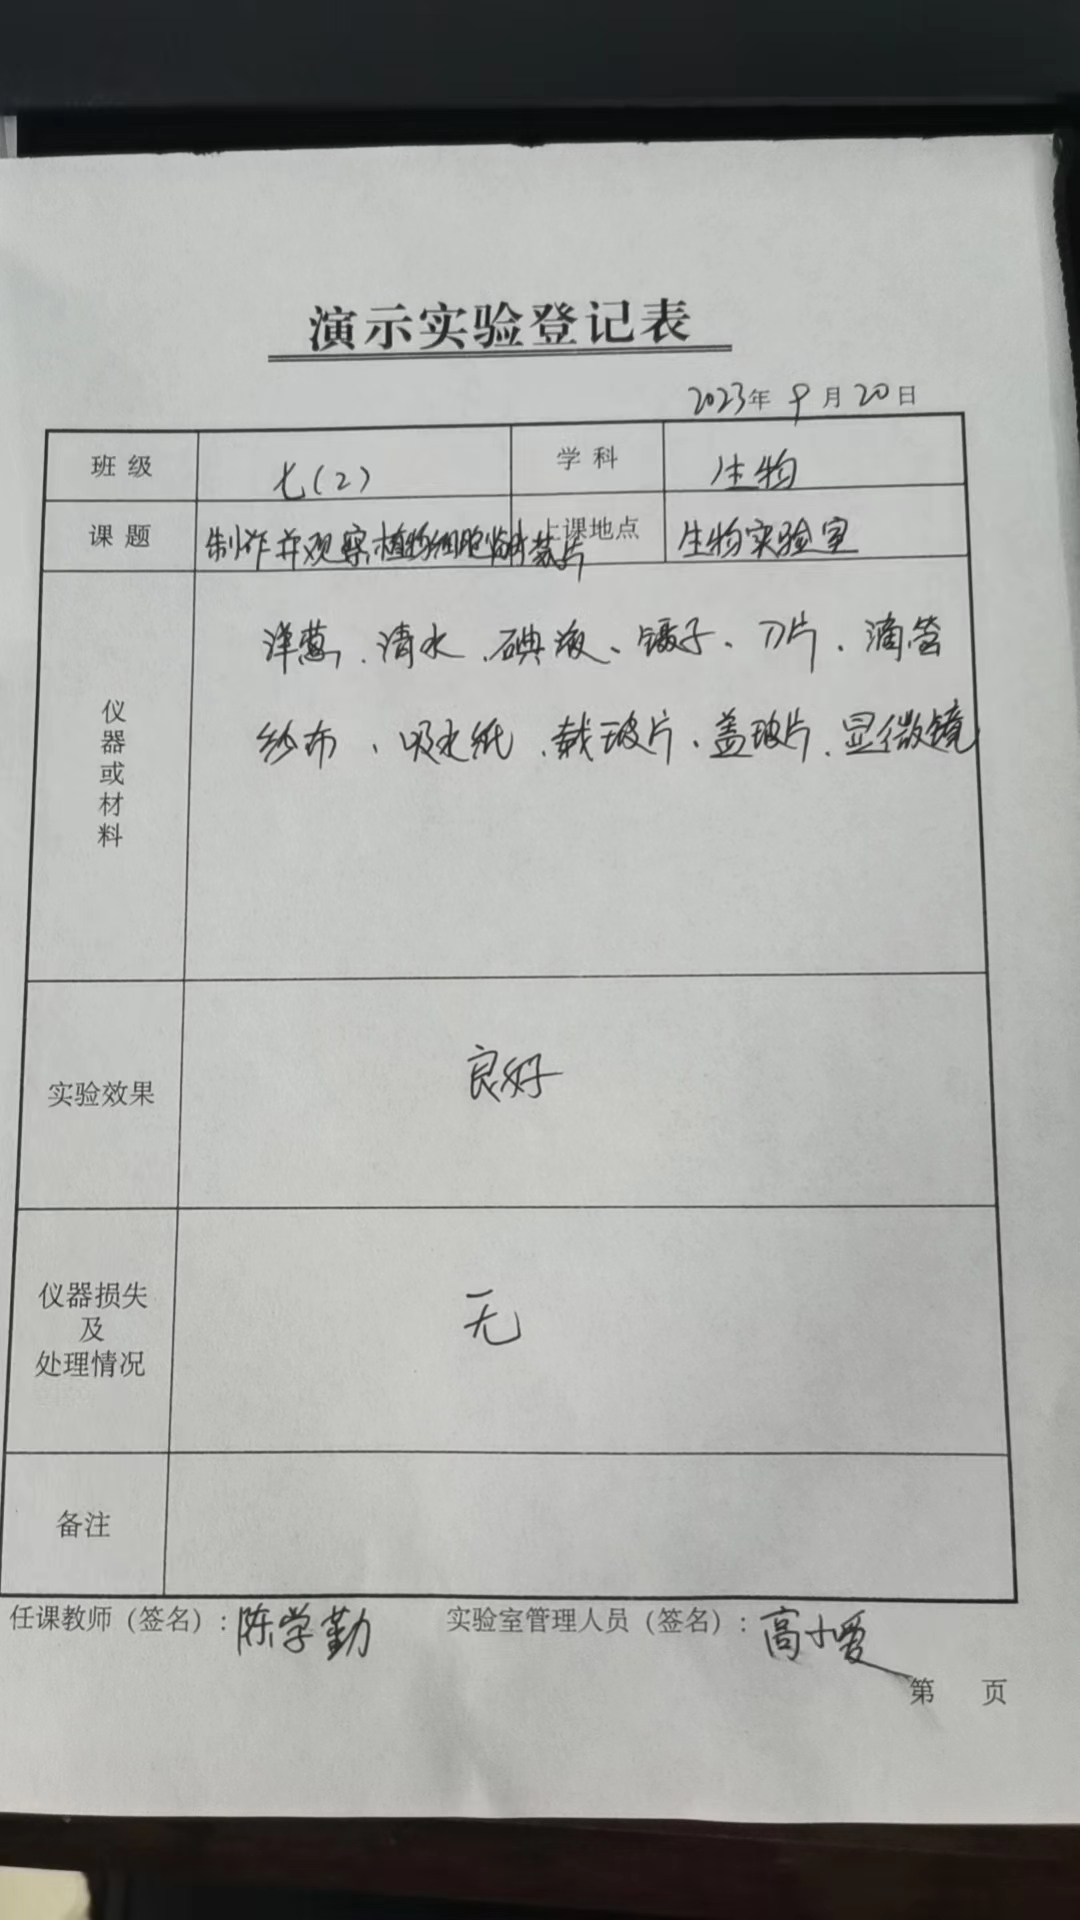 演示实验登记表
2023年 9月20日
班级 七(2) 学科 生物
课题 制作并观察植物细胞临时装片 上课地点 生物实验室
仪器或材料
洋葱、清水、碘液、镊子、刀片、滴管
纱布、吸水纸、载玻片、盖玻片、显微镜
实验效果 良好
仪器损失
及
处理情况
无
备注
任课教师（签名）：陈学勤 实验室管理人员（签名）：高小爱
第 页